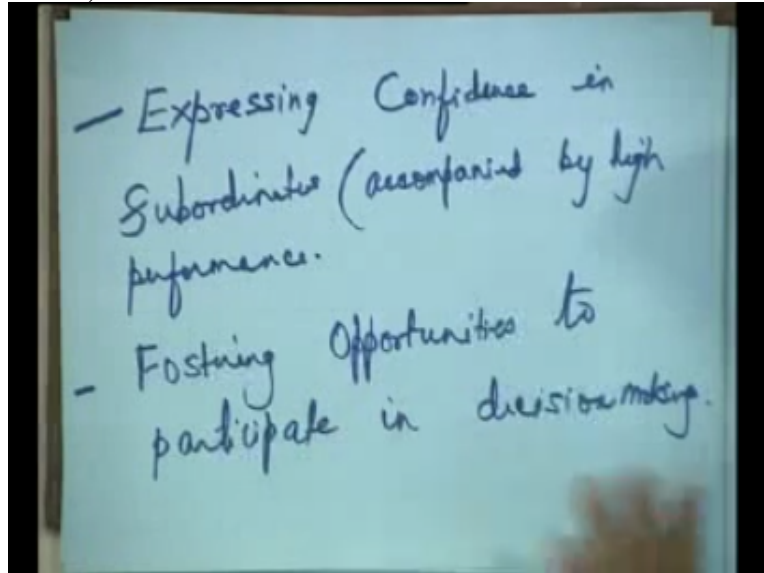 – Expressing Confidence in
Subordinates (accompanied by high
performance.
- Fostering Opportunities to
participate in decision making.